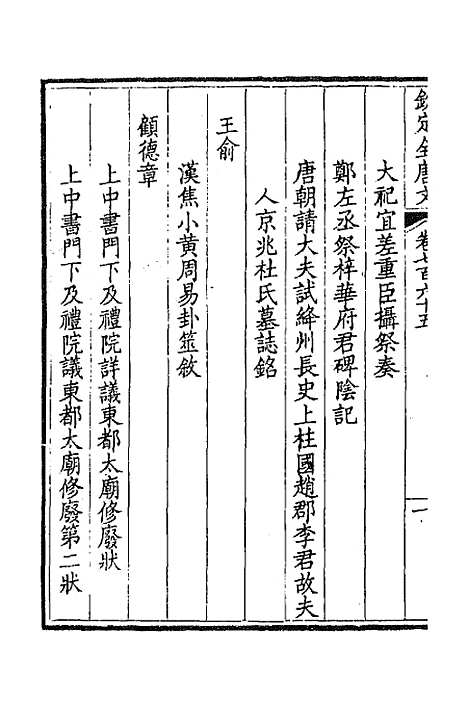 欽定全唐文 卷七百六十五 一
大祀宜差重臣攝祭奏
鄭左丞祭梓華府君碑陰記
唐朝請大夫試絳州長史上柱國趙郡李君故夫
人京兆杜氏墓誌銘
王俞
漢焦小黃周易卦筮敘
顧德章
上中書門下及禮院詳議東都太廟修廢狀
上中書門下及禮院議東都太廟修廢第二狀